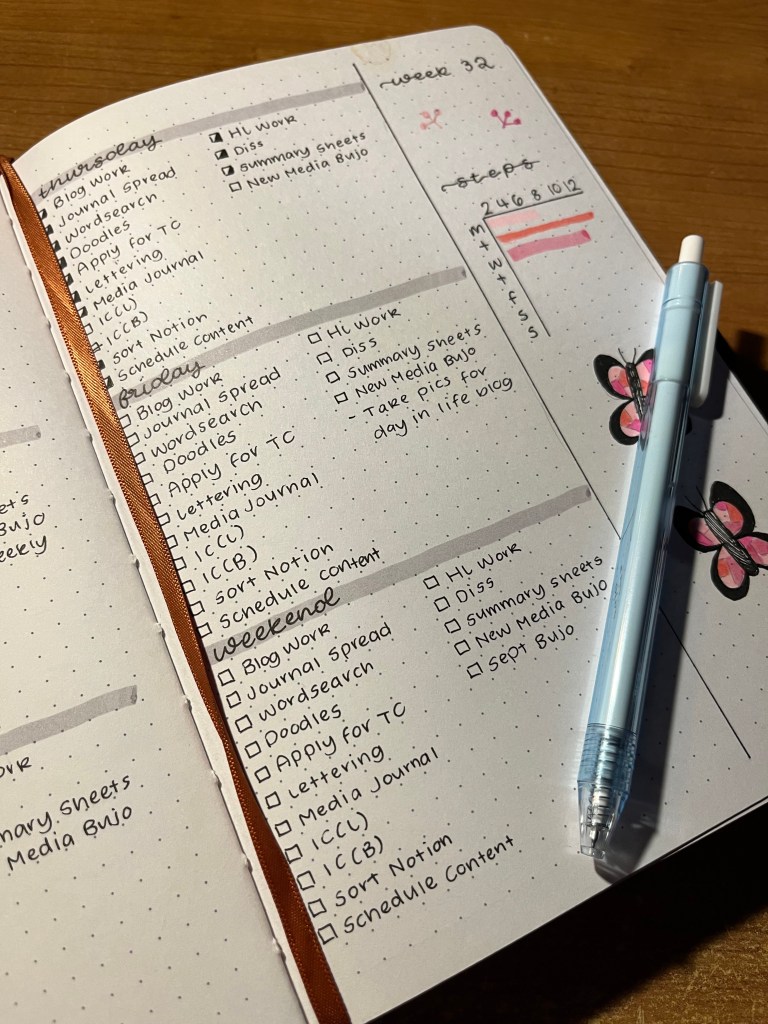 ets
Bujo
eekly
ork
mary Sheets
Media Bujo
thursday
Blog Work
Journal Spread
Wordsearch
Doodles
Apply for TC
Lettering
Media Journal
IC(L)
IC(B)
Sort Notion
Schedule Content
HL Work
Diss
Summary Sheets
New Media Bujo
friday
Blog Work
Journal Spread
Wordsearch
Doodles
Apply for TC
Lettering
Media Journal
IC(L)
IC(B)
Sort Notion
Schedule Content
HL Work
Diss
Summary Sheets
New Media Bujo
- Take pics for
day in life blog
weekend
Blog Work
Journal Spread
Wordsearch
Doodles
Apply for TC
Lettering
Media Journal
IC(L)
IC(B)
Sort Notion
Schedule Content
HL Work
Diss
Summary Sheets
New Media Bujo
Sept Bujo
week 32
steps
2 4 6 8 10 12
m
t
w
t
f
s
s